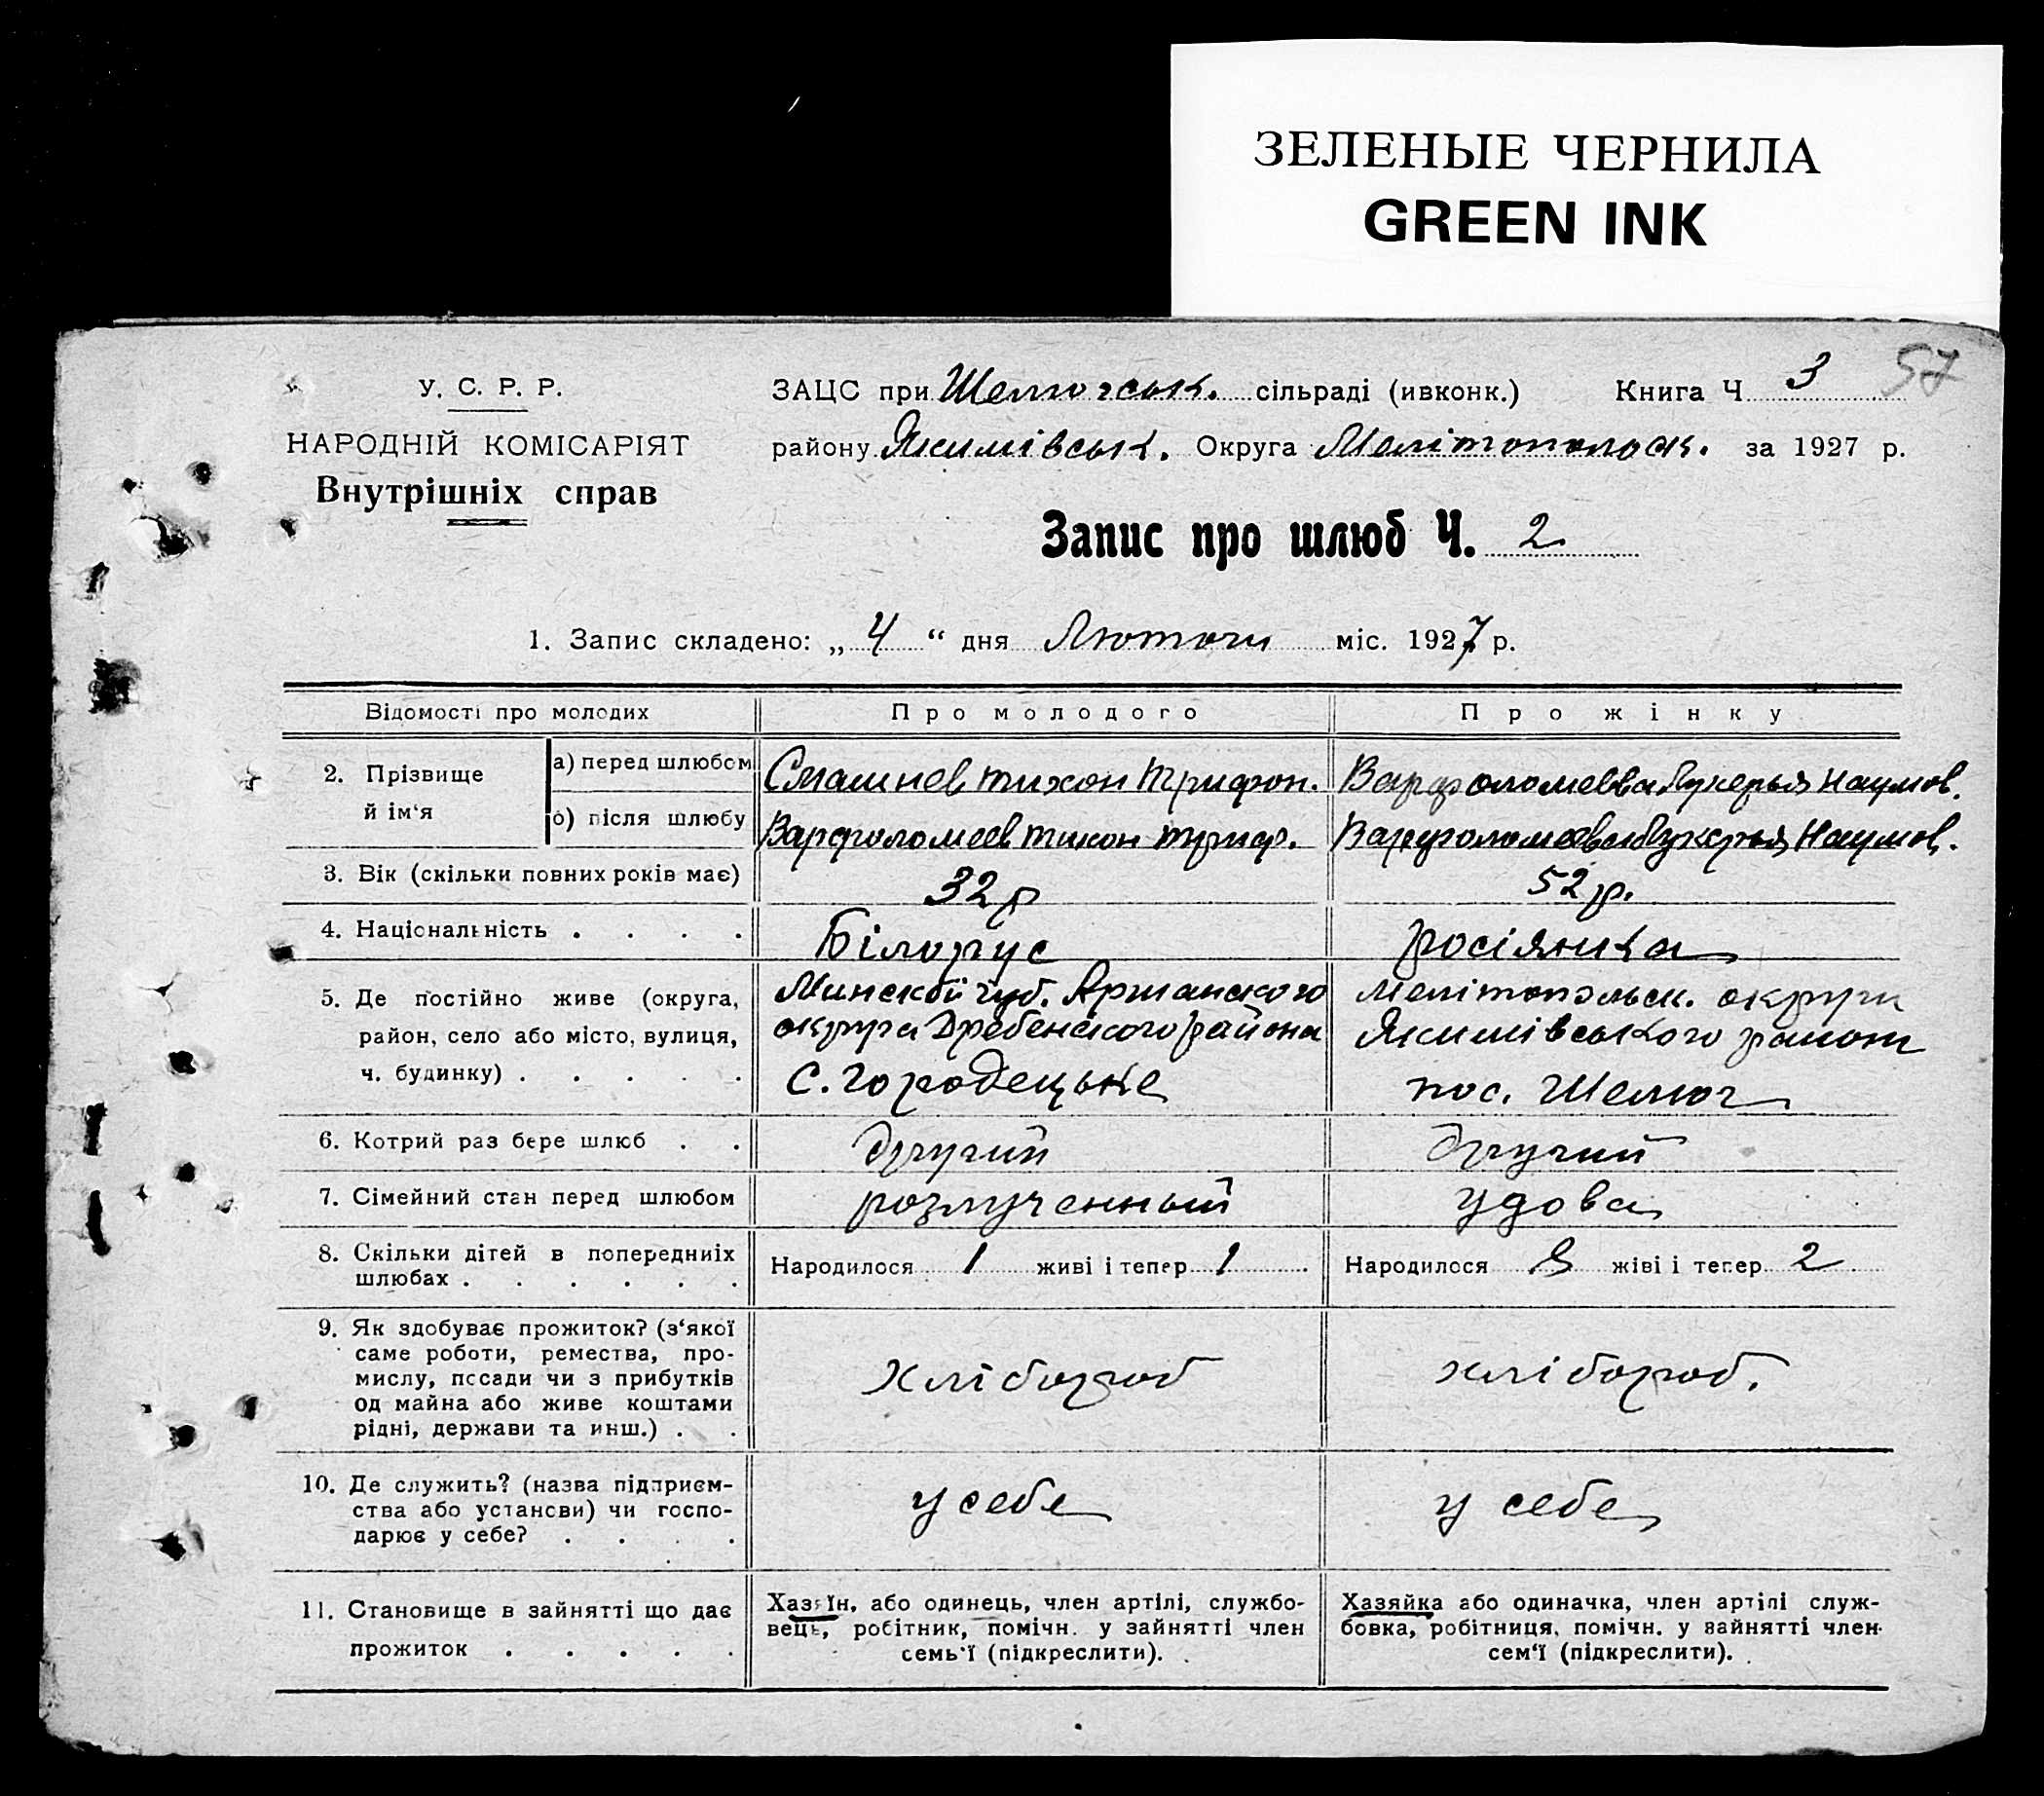 ЗЕЛЕНЫЕ ЧЕРНИЛА
GREEN INK
57
У. С. Р. Р.
НАРОДНІЙ КОМІСАРІЯТ
Внутрішніх справ
ЗАЦС при Шелюгськ. сільраді (ивконк.) Книга Ч 3
району Якимівськ. Округа Мелітопольск. за 1927 р.
Запис про шлюб Ч. 2
1. Запис складено: „ 4 “ дня Лютого міс. 1927 р.
Відомості про молодих
Про молодого
Про жінку
2. Прізвище й ім‘я
а) перед шлюбом
Смашнев Тихон Трифон.
Варфоломеева Лукерья Наумов.
б) після шлюбу
Варфоломеев Тихон Триф.
Варфоломеева Лукерья Наумов.
3. Вік (скільки повних років має)
32 р
52 р.
4. Національність . . . .
Білорус
росіянка
5. Де постійно живе (округа,
район, село або місто, вулиця,
ч. будинку) . . . . .
Минской губ. Аршанского
округа Дребенского района
с. Городецьке
Мелітопольск. округи
Якимівського району
пос. Шелюг
6. Котрий раз бере шлюб . .
другий
другий
7. Сімейний стан перед шлюбом
розлученный
удова
8. Скільки дітей в попередниіх
шлюбах . . . . . .
Народилося 1 живі і тепер 1
Народилося 8 жіві і тепер 2
9. Як здобуває прожиток? (з‘якої
саме роботи, ремества, про-
мислу, посади чи з прибутків
од майна або живе коштами
рідні, держави та инш.) . .
хлібороб
хлібороб.
10. Де служить? (назва підприєм-
ства або установи) чи госпо-
дарює у себе? . . . .
у себе
у себе
11. Становище в зайнятті що дає
прожиток . . . . .
Хазяїн, або одинець, член артілі, службо-
вець, робітник, помічн. у зайнятті член
семь‘ї (підкреслити).
Хазяйка або одиначка, член артілі служ-
бовка, робітниця, помічн. у зайнятті член
сем‘ї (підкреслити).